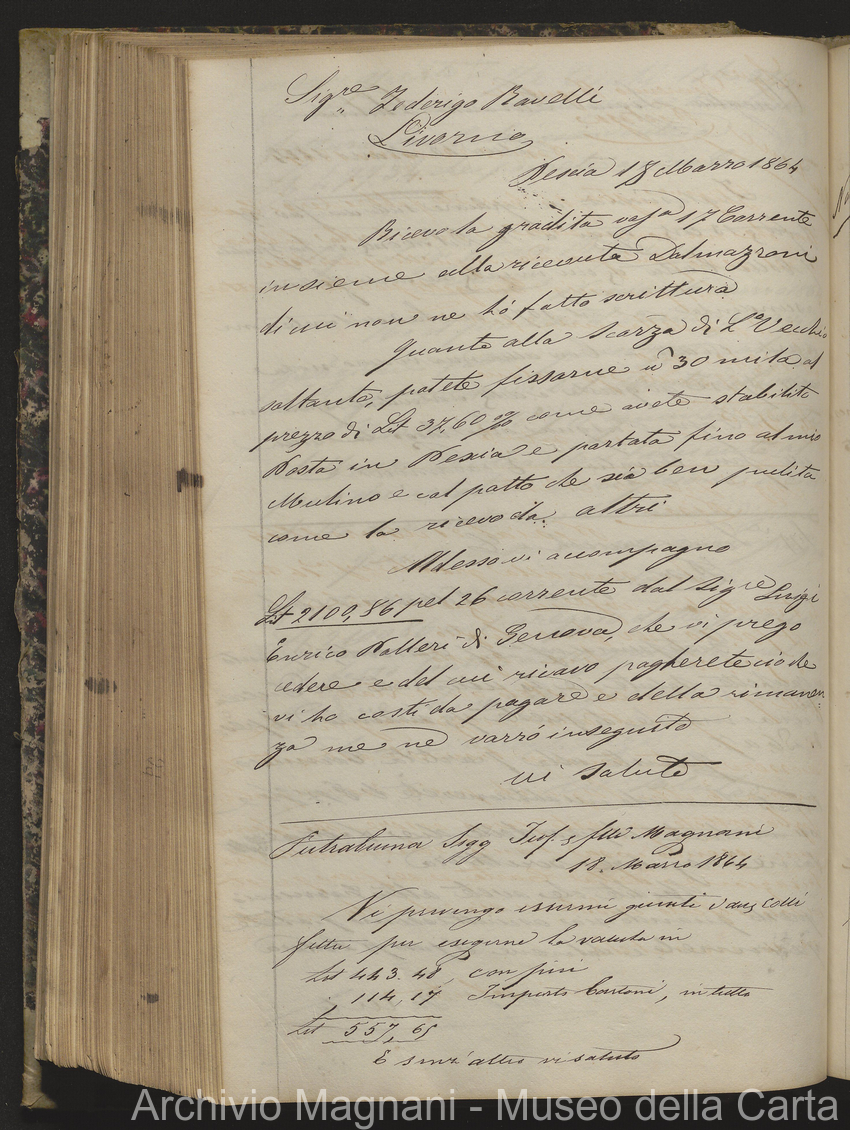 Sigre Federigo Ravelli
Livorno
Pescia 18 Marzo 1864
Ricevo la gradita vosa 17 Corrente
insieme alla ricevuta Dalmazzoni
di cui non ne hò fatto scrittura
Quanto alla Scorza di Lo Vecchio
soltanto, potete fissarne 30 mila, al
prezzo di Lit 37,60 % come avete stabilito
Posta in Pescia e portata fino al mio
Mulino e col patto che sia ben pulita
come la ricevo da altri
Adesso vi accompagno
Lit 2100,86 pel 26 corrente dal Sigre Luigi
Enrico Valleri di Genova, che vi prego
cedere e del cui ricavo pagherete ciò che
vi ho costì da pagare e della rimanen-
za me ne varrò in seguito
vi saluto
Pietrabuona Sigg Magnani
18. Marzo 1864
Vi prevengo essermi giunti colli
per esigerne la valuta in
Lit 443.48, con fini
" 114,17 Importo Cartoni, in tutto
Lit 557,65
E senz'altro vi saluto
Archivio Magnani - Museo della Carta